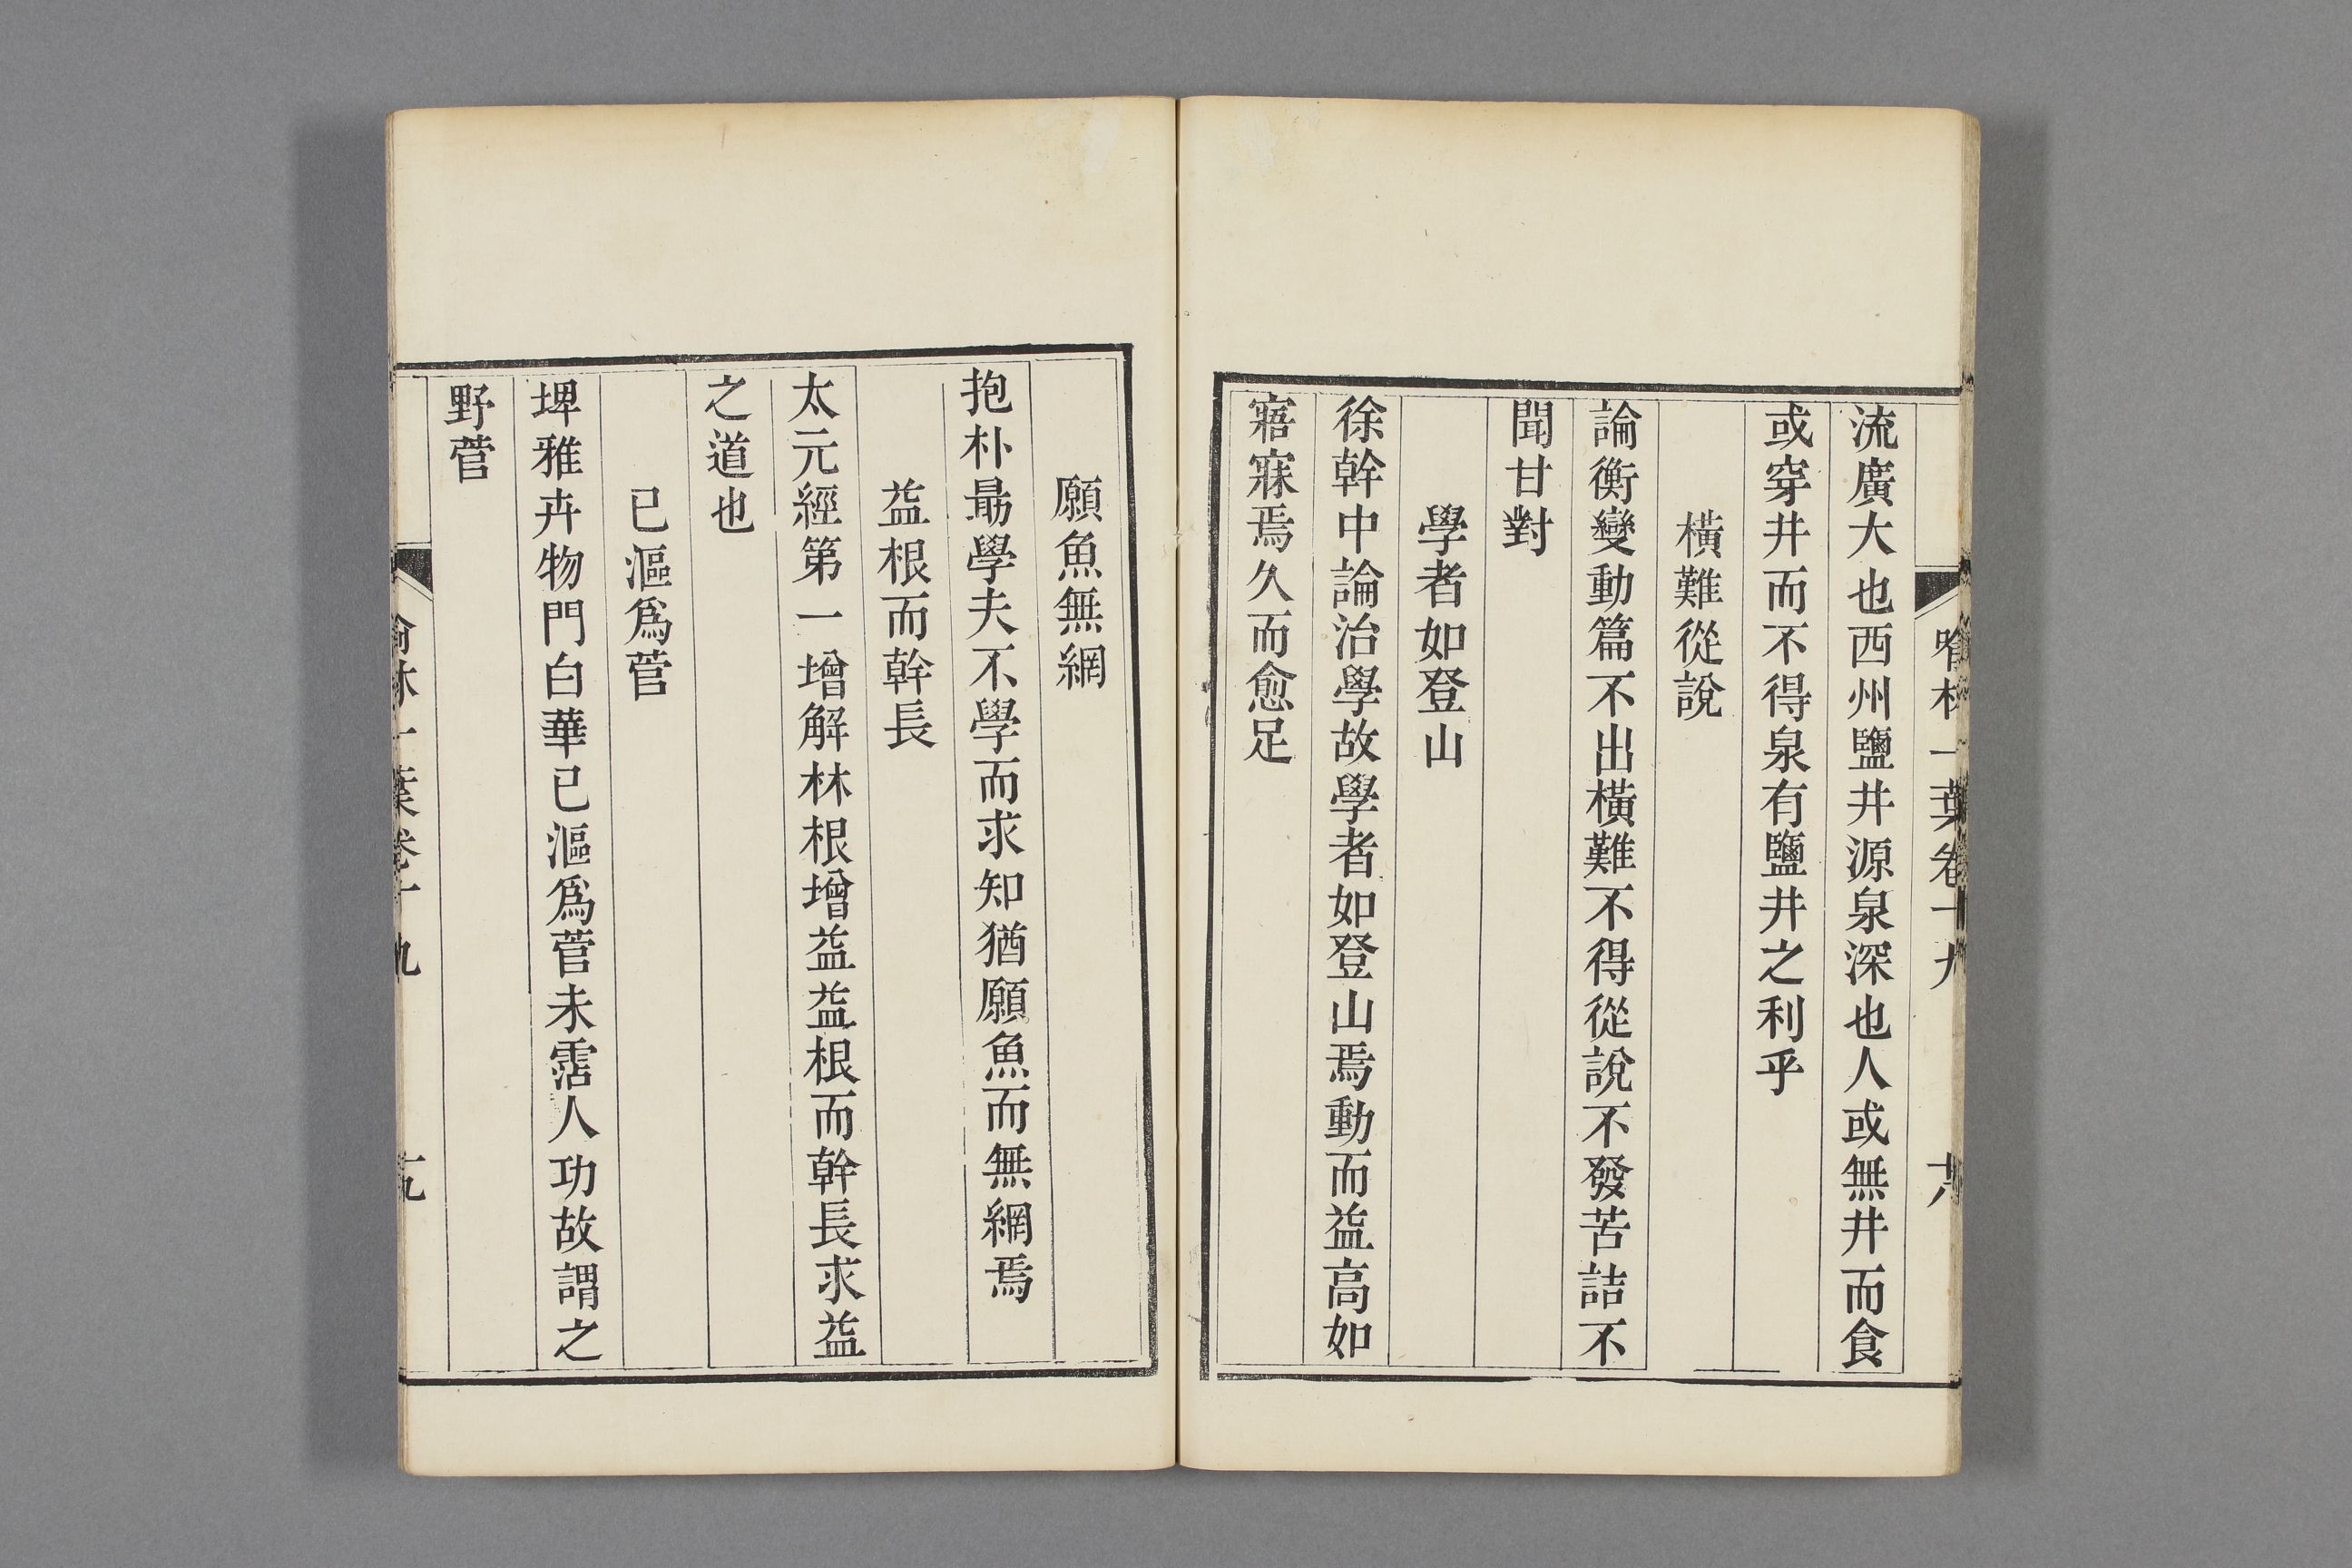 流廣大也西州鹽井源泉深也人或無井而食
或穿井而不得泉有鹽井之利乎
橫難從說
論衡變動篇不出橫難不得從說不發苦詰不
聞甘對
學者如登山
徐幹中論治學故學者如登山焉動而益高如
寤寐焉久而愈足
願魚無網
抱朴勗學夫不學而求知猶願魚而無網焉
益根而幹長
太元經第一增解林根增益益根而幹長求益
之道也
已漚爲菅
埤雅卉物門白華已漚爲菅未霑人功故謂之
野菅